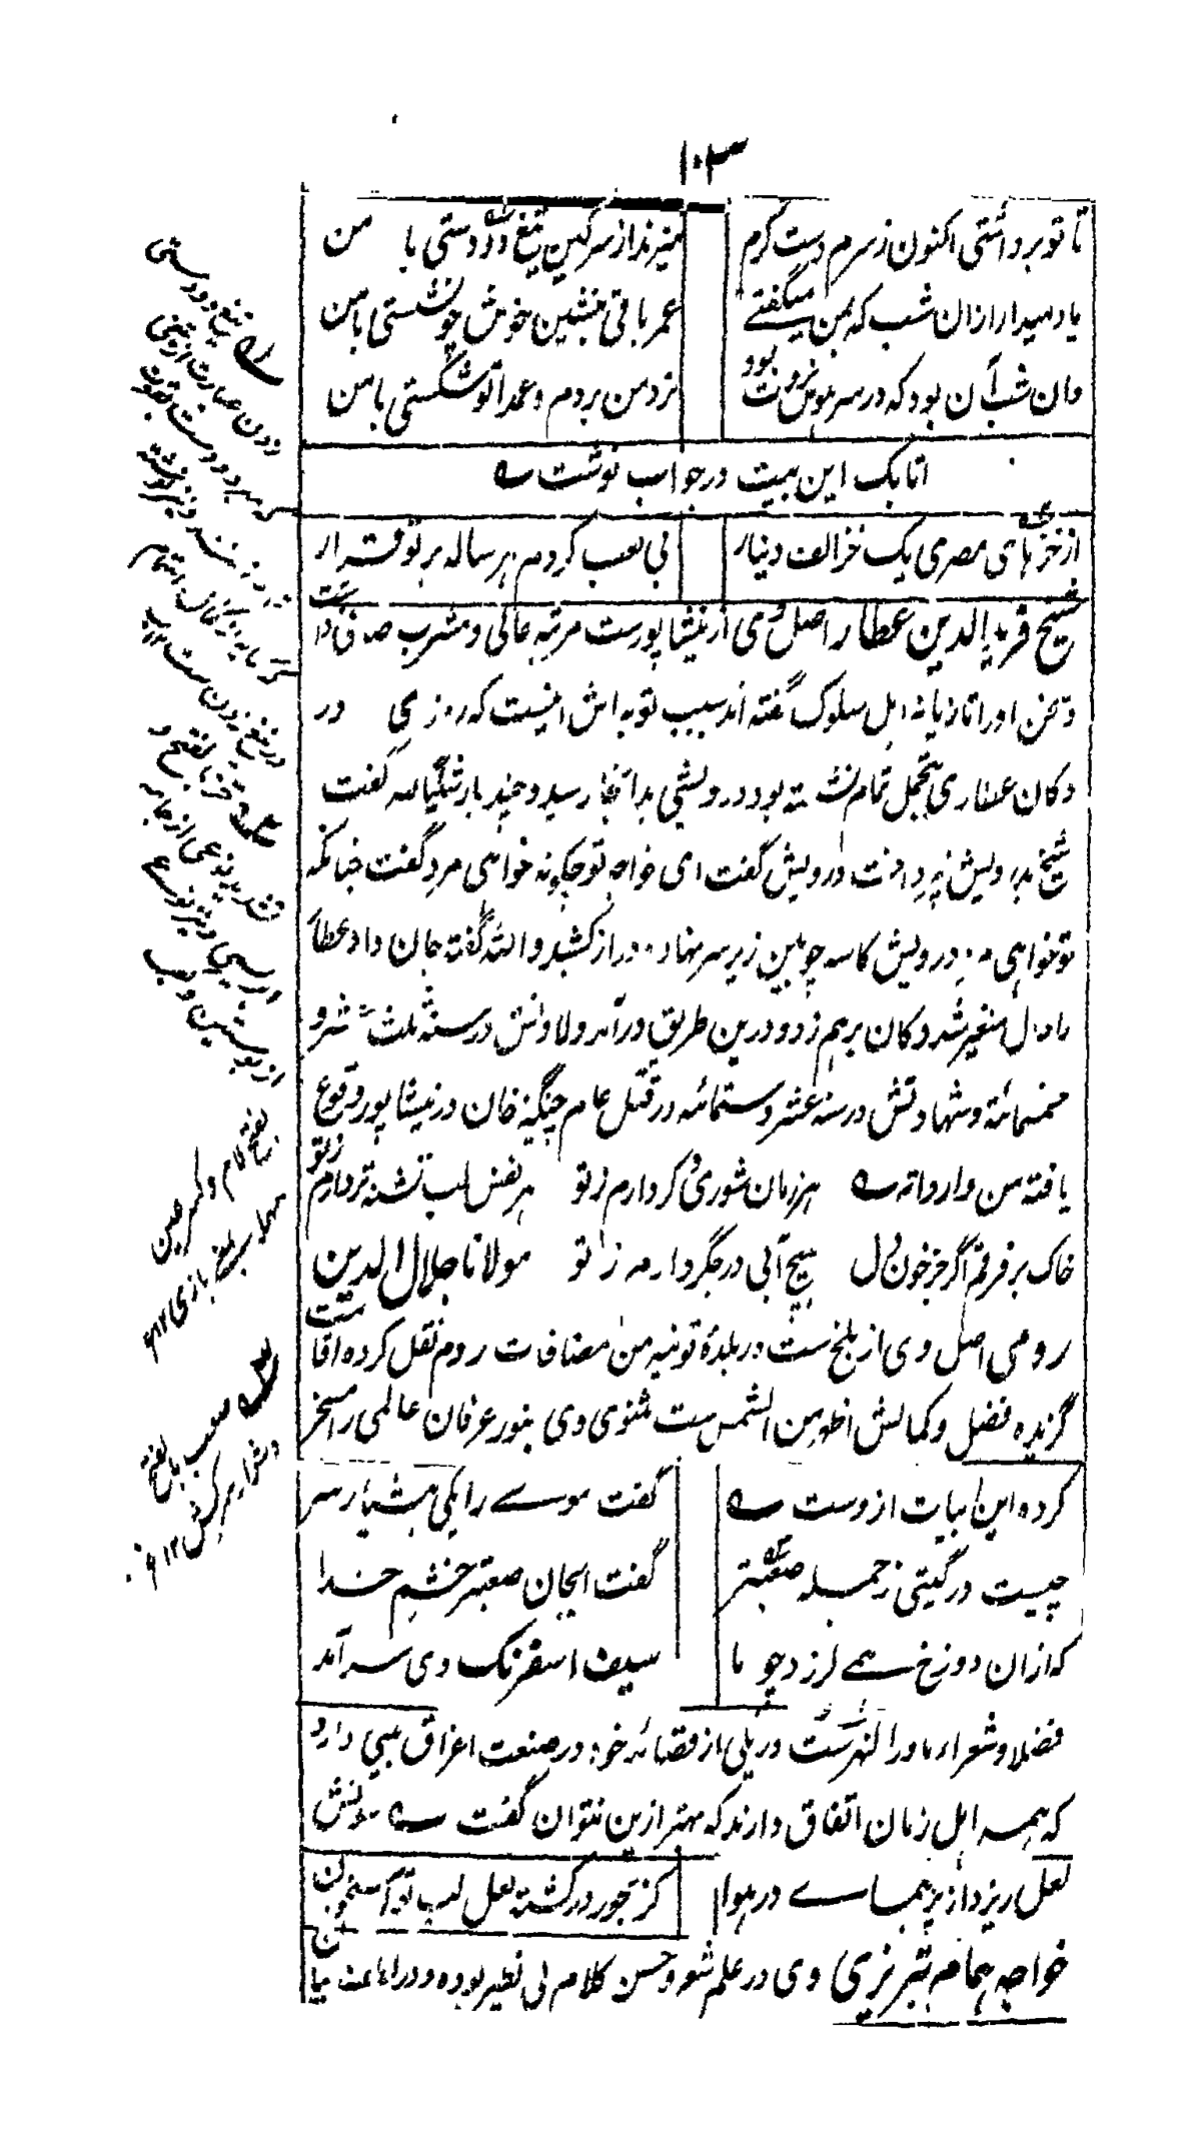 ۱۰۳
تا تو برداشتی اکنون ز سرم دست کرم میزند از سر کین تیغ دو دستی با من
یاد میدار ازان شب که بمن میگفتے عمر باقی بنشین خوش چو نشستی با من
وان شب آن بود که در سر هوش بود نزد من بردم و عهد تو شکستی با من
اتابک این بیت در جواب نوشت ے
از خزهای مصری یک خز الف دینار بی تعب کردم هر ساله بر تو قرار
شیخ فرید الدین عطار اصل وی از نیشاپورست مرتبه عالی و مشرب صافی داشت
و سخن او را تازیانه اهل سلوک گفته اند سبب توبه اش اینست که روزی در
دکان عطاری بتجمل تمام نشسته بود درویشی بدانجا رسید و چند بار شیئا لله گفت
شیخ بدرویش نپرداخت درویش گفت ای خواجه تو چگونه خواهی مرد گفت چنانکه
تو خواهی مرد درویش کاسه چوبین زیر سر نهاد و دراز کشید و الله گفته جان داد عطار
را دل متغیر شد و دکان برهم زد و درین طریق درآمد ولادتش در سنه ثلث عشر و
خمسمائة و شهادتش در سنه عشر و ستمائه در قتل عام چنگیز خان در نیشاپور وقوع
یافته من وارداته ے هر زمان شوری دگر دارم ز تو هر نفس لب تشنه تر دارم ز تو
خاک بر فرقم اگر جز خون دل هیچ آبی در جگر دارم ز تو مولانا جلال الدین
رومی اصل وی از بلخ ست در بلده قونیه من مضافات روم نقل کرده اقامت
گزیده فضل و کمالش اظهر من الشمس ست مثنوی وی بنور عرفان عالمی را مسخر
کرده این ابیات ازوست ے گفت موسے را یکی هشیار سر
چیست در گیتی ز جمله صعبتر گفت ایجان صعبتر خشم خدا
که ازان دوزخ همے لرزد چو ما سیف اسفرنگ وی سرآمد
فضلا و شعراء ماوراء النهرست در یکی از قصائد خود در صنعت اغراق بیتی دارد
که همه اهل زمان اتفاق دارند که بهتر ازین نتوان گفت ے سونش
لعل ریزد از پر همائے در هوا گر بخورد ز کشته لعل لب تو استخوان
خواجه همام تبریزی وی در علم شعر و حسن کلام بی نظیر بوده و در
تیغ دو دستی
زدن عبارت از تیغی
که بهر دو دست بقوت
در تیغ زدن ست
خز بالفتح و
تشدید نوعی از جامه
ابریشمی و نیز نوعی
از پوستین و تعب
بفتح لام و کسر عین
صعب بالفتح
دشوار و سرکش ۱۲